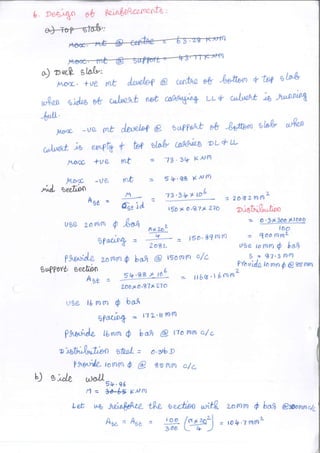 6. Design of Reinforcements:
a) Top slab:
Max. mt @ centre = 63.29 KNm
Max. mt @ support = 43.77 KNm
a) Deck slab:
Max. +ve mt develop @ centre of bottom & top slab
when sides of culvert not carrying LL & culvert is running
full.
Max -ve mt develop @ support of bottom slab when
culvert is empty & top slab carries DL & LL
Max +ve mt = 73.34 KNm
Max -ve mt = 54.98 KNm
mid section
Ast = M / σst jd = 73.34 x 10^6 / 150 x 0.87 x 270 = 2082 mm²
Distribution
= 0.3x300x1000 / 100
= 900 mm²
use 10 mm φ bar
S = 87.3 mm
Provide 10 mm φ @ 85 mm
use 20mm φ bar
spacing = π x 20² / 4 / 2082 = 150.89 mm
Provide 20mm φ bar @ 150mm c/c
Support section
Ast = 54.98 x 10^6 / 200x0.87x270 = 1168.16 mm²
use 16 mm φ bar
spacing = 172.11 mm
Provide 16mm φ bar @ 170 mm c/c
Distribution steel = 0.3% D
Provide 10mm φ @ 85 mm c/c
b) Side wall
54.98
M = 30.65 KNm
Let us reinforce the section with 20mm φ bar @300mm c/c
Asc = Ast = 100 / 300 [π x 20² / 4] = 104.7 mm²